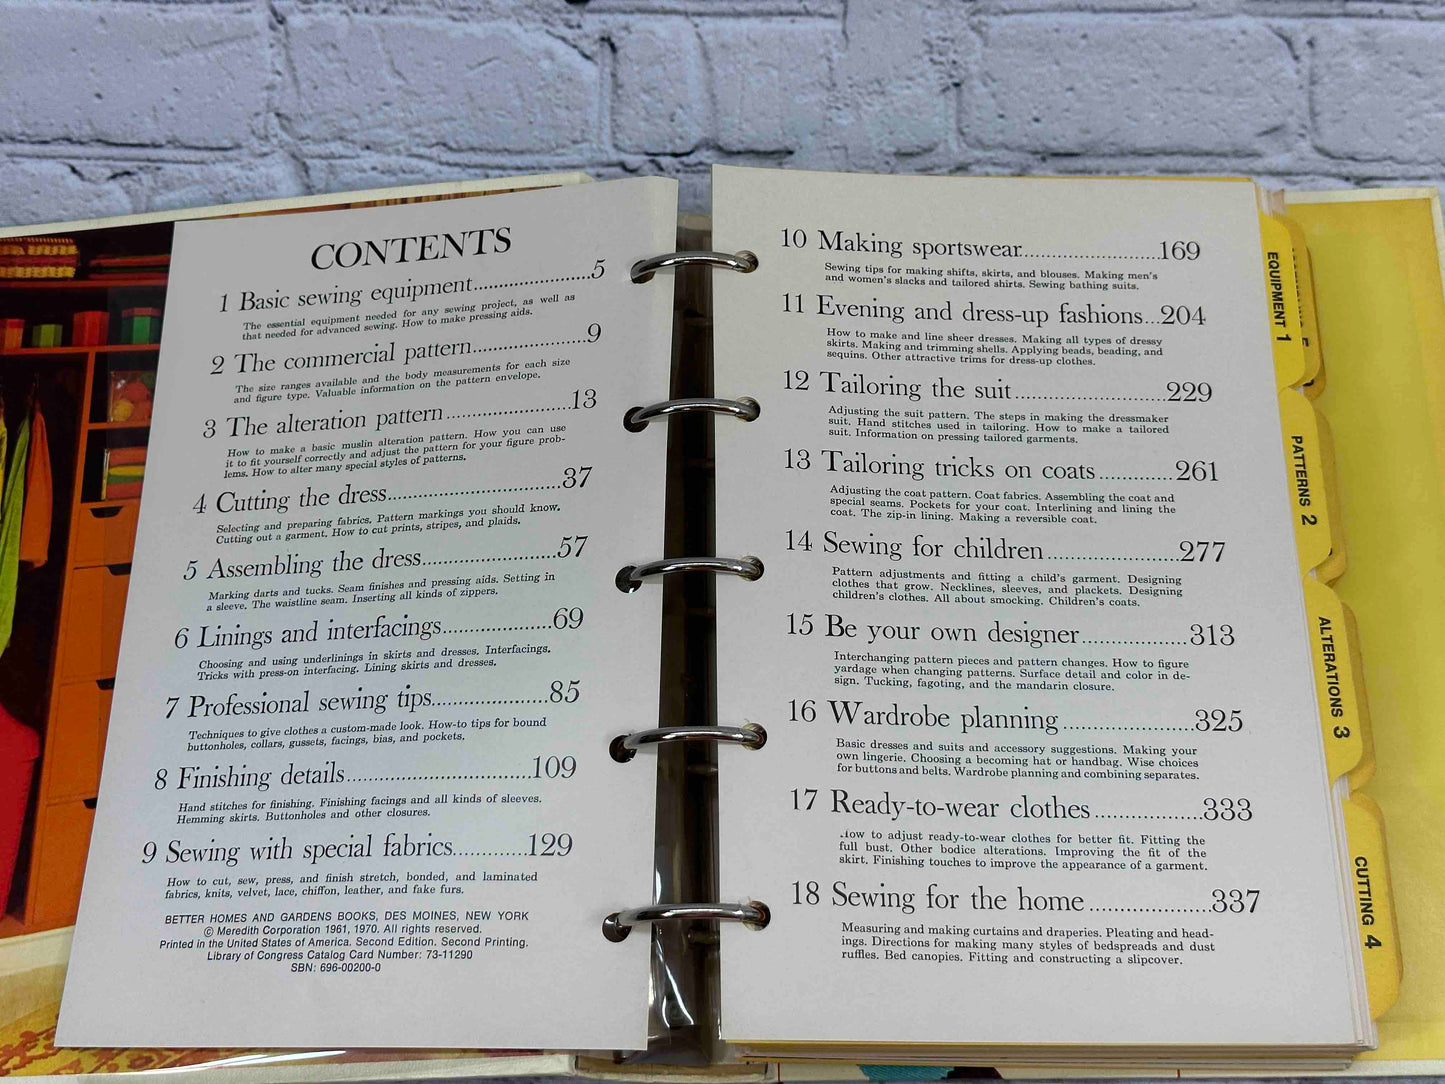 CONTENTS
1 Basic sewing equipment......................5
The essential equipment needed for any sewing project, as well as
that needed for advanced sewing. How to make pressing aids.
2 The commercial pattern.....................9
The size ranges available and the body measurements for each size
and figure type. Valuable information on the pattern envelope.
3 The alteration pattern.......................13
How to make a basic muslin alteration pattern. How you can use
it to fit yourself correctly and adjust the pattern for your figure prob-
lems. How to alter many special styles of patterns.
4 Cutting the dress................................37
Selecting and preparing fabrics. Pattern markings you should know.
Cutting out a garment. How to cut prints, stripes, and plaids.
5 Assembling the dress.........................57
Marking darts and tucks. Seam finishes and pressing aids. Setting in
a sleeve. The waistline seam. Inserting all kinds of zippers.
6 Linings and interfacings....................69
Choosing and using underlinings in skirts and dresses. Interfacings.
Tricks with press-on interfacing. Lining skirts and dresses.
7 Professional sewing tips.....................85
Techniques to give clothes a custom-made look. How-to tips for bound
buttonholes, collars, gussets, facings, bias, and pockets.
8 Finishing details................................109
Hand stitches for finishing. Finishing facings and all kinds of sleeves.
Hemming skirts. Buttonholes and other closures.
9 Sewing with special fabrics.............129
How to cut, sew, press, and finish stretch, bonded, and laminated
fabrics, knits, velvet, lace, chiffon, leather, and fake furs.
BETTER HOMES AND GARDENS BOOKS, DES MOINES, NEW YORK
© Meredith Corporation 1961, 1970. All rights reserved.
Printed in the United States of America. Second Edition. Second Printing.
Library of Congress Catalog Card Number: 73-11290
SBN: 696-00200-0
10 Making sportswear........................169
Sewing tips for making shifts, skirts, and blouses. Making men's
and women's slacks and tailored shirts. Sewing bathing suits.
11 Evening and dress-up fashions...204
How to make and line sheer dresses. Making all types of dressy
skirts. Making and trimming shells. Applying beads, beading, and
sequins. Other attractive trims for dress-up clothes.
12 Tailoring the suit..........................229
Adjusting the suit pattern. The steps in making the dressmaker
suit. Hand stitches used in tailoring. How to make a tailored
suit. Information on pressing tailored garments.
13 Tailoring tricks on coats.............261
Adjusting the coat pattern. Coat fabrics. Assembling the coat and
special seams. Pockets for your coat. Interlining and lining the
coat. The zip-in lining. Making a reversible coat.
14 Sewing for children.......................277
Pattern adjustments and fitting a child's garment. Designing
clothes that grow. Necklines, sleeves, and plackets. Designing
children's clothes. All about smocking. Children's coats.
15 Be your own designer..................313
Interchanging pattern pieces and pattern changes. How to figure
yardage when changing patterns. Surface detail and color in de-
sign. Tucking, fagoting, and the mandarin closure.
16 Wardrobe planning.......................325
Basic dresses and suits and accessory suggestions. Making your
own lingerie. Choosing a becoming hat or handbag. Wise choices
for buttons and belts. Wardrobe planning and combining separates.
17 Ready-to-wear clothes...................333
.low to adjust ready-to-wear clothes for better fit. Fitting the
full bust. Other bodice alterations. Improving the fit of the
skirt. Finishing touches to improve the appearance of a garment.
18 Sewing for the home.....................337
Measuring and making curtains and draperies. Pleating and head-
ings. Directions for making many styles of bedspreads and dust
ruffles. Bed canopies. Fitting and constructing a slipcover.
EQUIPMENT 1
PATTERNS 2
ALTERATIONS 3
CUTTING 4